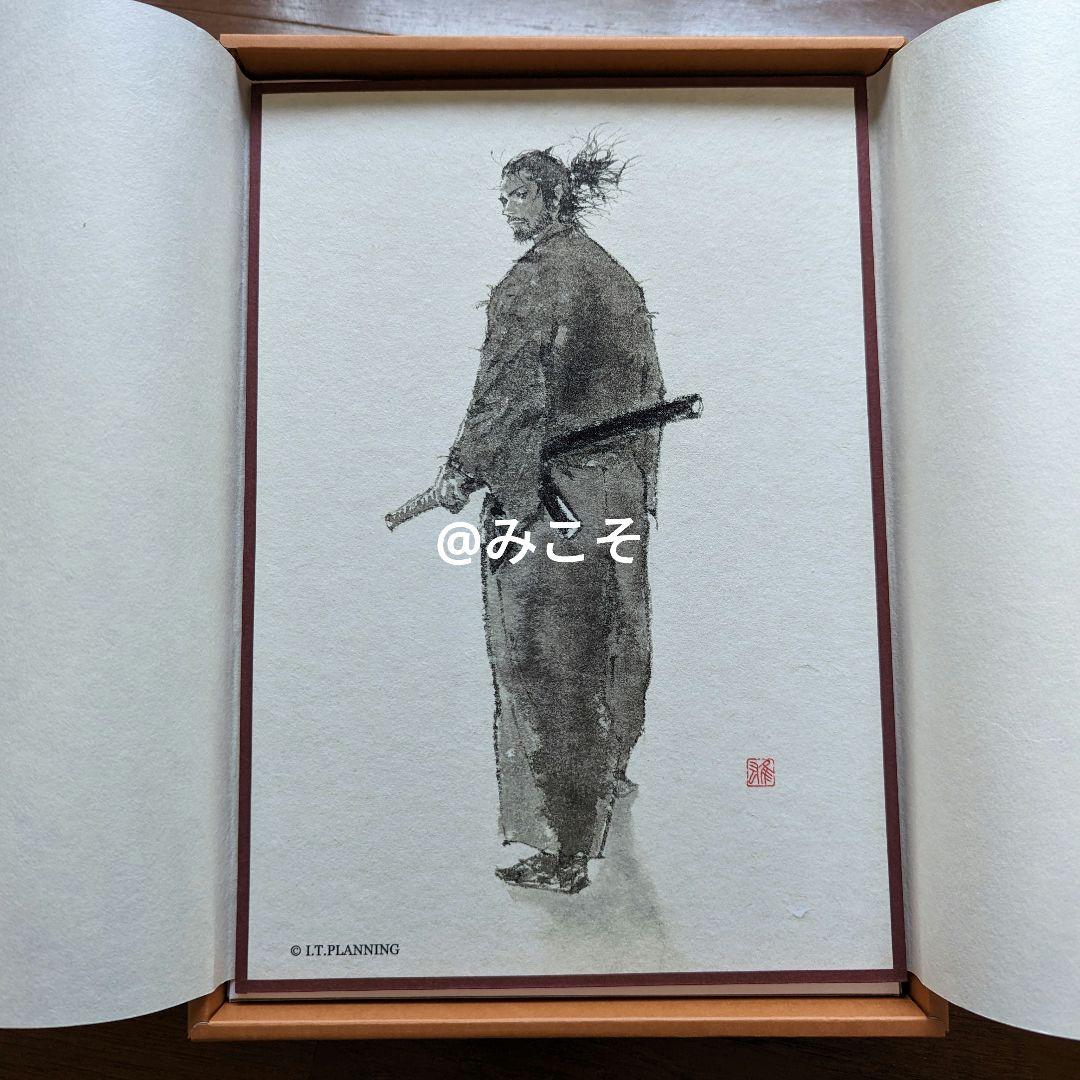 @みこそ
雅
© I.T.PLANNING